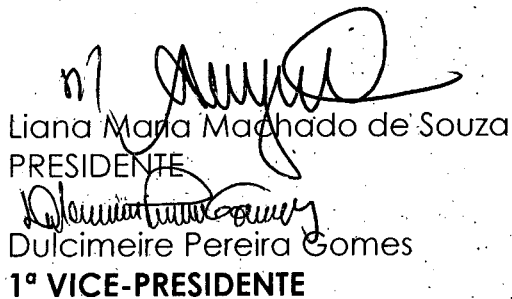 Liana Maria Machado de Souza
PRESIDENTE
Dulcimeire Pereira Gomes
1ª VICE-PRESIDENTE